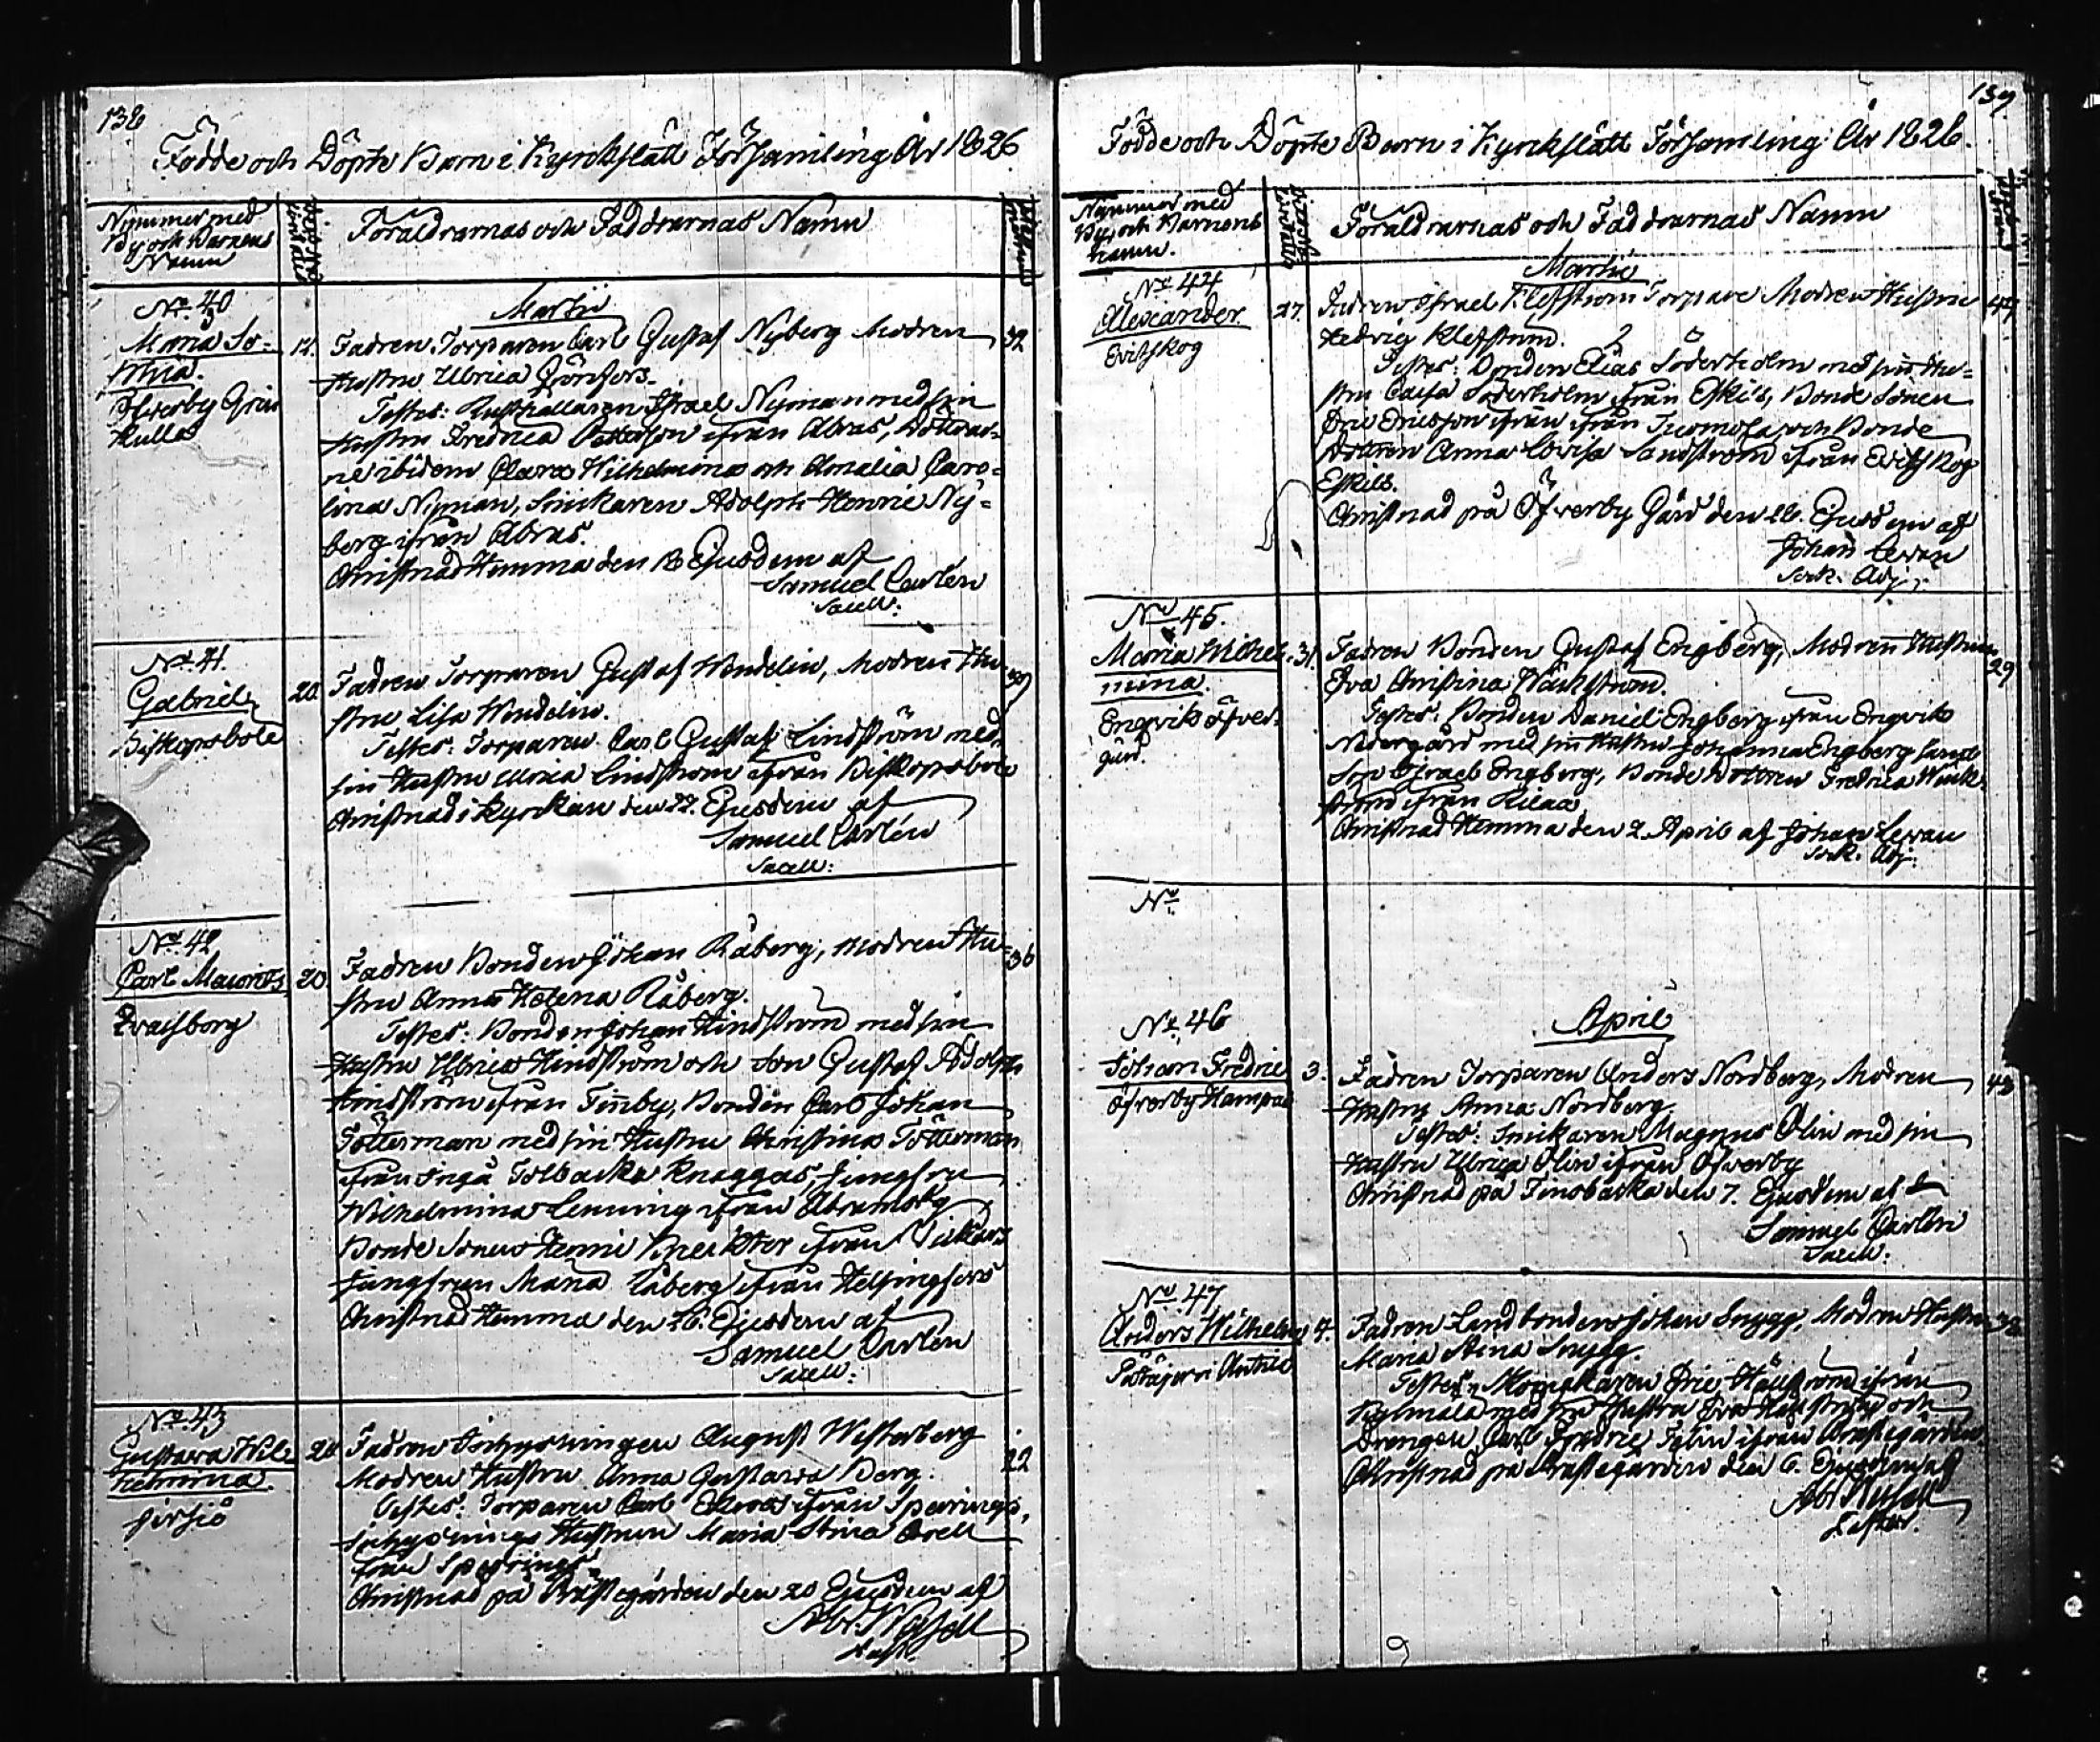 138
Födde och Döpte Barn i Kyrckslätt Församling År 1826
Nummer med
By och Barnens
Namn
Föräldrarnas och Faddrarnas Namn
Martii
No. 40
Maria So-
phia.
Öfwerby Grän
kulla
14.
Fadren Torparen Carl Gustaf Nyberg Modren
32
Hustru Ulrica Grönfors.
Testes: Rusthållaren Israel Nyman med sin
Hustru Fredrica Pettersson ifrån Abras, Döttrar-
ne ibidem Clara Wilhelmina och Amalia Caro-
lina Nyman, Snickaren Adolph Henric Ny-
berg ifrån Abras.
Christnad Hemma den 18 Ejusdem af
Samuel Carlén
Sacell:
No. 41.
Gabriel
Biskopsböle
20.
Fadren Torparen Gustaf Wendelin, Modren Hu-
39
stru Lisa Wendelin.
Testes: Torparen Carl Gustaf Lindström med
sin Hustru Ulrica Lindström ifrån Biskopsböle
Christnad i Kyrckan den 27. Ejusdem af
Samuel Carlén
Sacell:
No. 42
Carl Mauritz
Evatsborg
20.
Fadren Bonden Johan Råberg, Modren Hu-
36
stru Anna Helena Råberg.
Testes: Bonden Johan Hindström med sin
Hustru Ulrica Hindström och Son Gustaf Adolph
Hindström ifrån Finnby, Bonden Carl Johan
Tötterman med sin Hustru Christina Tötterman
ifrån Ingå Tolbacka Knaggas, Jungfru
Wilhelmina Lemning ifrån Abramsby
Bonde Sonen Henric ifrån Vickars
Jungfrun Maria Råberg ifrån Helsingfors
Christnad Hemma den 26. Ejusdem af
Samuel Carlén
Sacell:
No. 43
Gustava Wil-
helmina.
Jorsiö
20
Fadren Inhysningen August Westerberg
22
Modren Hustru Anna Gustava Berg.
Testes: Torparen Carl ifrån Sperrings,
Inhysnings Hustrun Maria Stina
från Sperrings.
Christnad på Prästegården den 20 Ejusdem af
139
Födde och Döpte Barn i Kyrckslätt Församling År 1826.
Nummer med
By och Barnens
Namn.
Föräldrarnas och Faddrarnas Namn
Martii
No. 44
Alexander
Evitskog
27.
Fadren Israel Klefström Torpare Modren Hustru
44
Hedvig Klefström.
Testes: Bonden Elias Söderholm med sin Hu-
stru Caisa Söderholm ifrån Eskils, Bonde Sonen
Eric Ericsson ifrån ifrån Tuomola och Bonde
Dottren Anna Lovisa Sandström ifrån Evitskog
Eskils.
Christnad på Öfwerby Gård den 28. Ejusdem af
Johan Levan
Sock. Adj:
No. 45.
Maria Wilhel-
mina.
Engvik Öfver-
gård.
31.
Fadren Bonden Gustaf Engberg, Modren Hustrun
29
Eva Christina Wickström.
Testes: Bonden Daniel Engberg ifrån Engvik
Nedergård med sin Hustru Johanna Engberg samt
Son Israel Engberg, Bonde Dottren Fredrica Wick-
ström ifrån Kilaa
Christnad Hemma den 2. April af Johan Levan
Sock. Adj:
No.
April
No. 46
Johan Fredric
Öfverby Kampas
3.
Fadren Torparen Anders Nordberg, Modren
43
Hustru Anna Nordberg.
Testes: Snickaren Magnus Olin med sin
Hustru Ulrica Olin ifrån Öfwerby
Christnad på Finsbacka den 7. Ejusdem af
Samuel Carlén
Sacell:
No. 47
Anders Wilhelm
4.
Fadren Landbonden Johan Snygg, Modren Hustru
38
Maria Stina Snygg.
Testes: Eric Hellström ifrån
Kylmälä med sin Hustru Eva Hellström och
Drengen Carl Fredric ifrån Prästegården
Christnad på Prästegården den 6. Ejusdem af